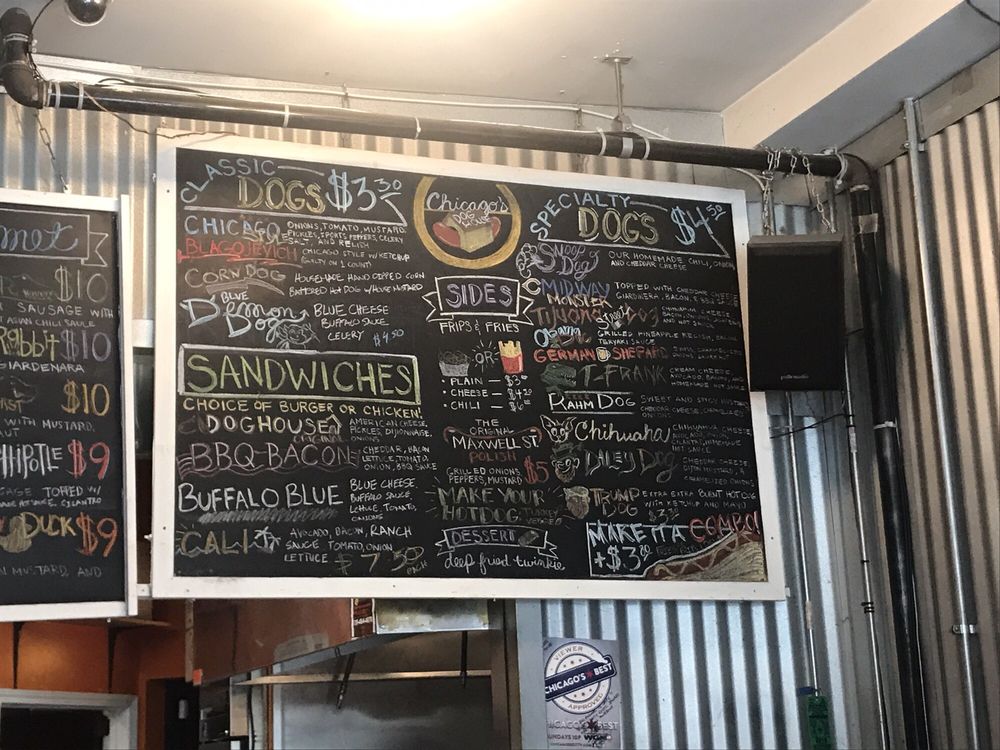 met
$10
SAUSAGE WITH
ASIAN CHILI SAUCE
RABBIT $10
GIARDENARA
$10
WITH MUSTARD,
CHIPOTLE $9
TOPPED W/
CILANTRO
DUCK $9
MUSTARD, AND
CLASSIC
DOGS $3.30
CHICAGO ONIONS, TOMATO, MUSTARD,
PICKLES, SPORTS PEPPERS, CELERY
SALT, AND RELISH
BLAGOJEVICH CHICAGO STYLE W/KETCHUP
(GUILTY ON 1 COUNT)
CORN DOG HOUSEMADE HAND DIPPED CORN
BATTERED HOT DOG W/HOUSE MUSTARD
BLUE
DEMON
DOG BLUE CHEESE
BUFFALO SAUCE
CELERY $4.50
SANDWICHES
CHOICE OF BURGER OR CHICKEN!
DOGHOUSE AMERICAN CHEESE,
PICKLES, DIJONNAISE,
ONIONS
ORIGINAL
BBQ-BACON CHEDDAR, BACON
LETTUCE, TOMATO,
ONION, BBQ SAUCE
BUFFALO BLUE BLUE CHEESE,
BUFFALO SAUCE,
LETTUCE, TOMATO,
ONIONS
CALI AVOCADO, BACON, RANCH
SAUCE TOMATO, ONION
LETTUCE $7.50 each
Chicago's
DOG
HOUSE
SIDES
FRIPS & FRIES
OR
• PLAIN —
• CHEESE —
• CHILI —
THE
ORIGINAL
MAXWELL ST
POLISH
GRILLED ONIONS
PEPPERS, MUSTARD $5
MAKE YOUR
HOTDOG
DESSERT
deep fried twinkie
SPECIALTY
DOGS $4.50
Snoop
Dog OUR HOMEMADE CHILI, ONION,
AND CHEDDAR CHEESE
MIDWAY
MONSTER TOPPED WITH CHEDDAR CHEESE
GIARDINERA, BACON, & BBQ
Tijuana
BACON, ONIONS,
AND HOT SAUCE
GRILLED PINEAPPLE RELISH, BACON
TERIYAKI SAUCE
GERMAN SHEPARD
T-FRANK CREAM CHEESE,
AVOCADO, BACON, AND
HOMEMADE HOT SAUCE
RAHM DOG SWEET AND SPICY
CHEDDAR CHEESE,
ONIONS
Chihuahua CHIHUAHUA CHEESE
AVOCADO, ONION,
CILANTRO, HOMEMADE
HOT SAUCE
DALEY DOG CHEDDAR CHEESE,
DIJON MUSTARD, &
CARAMELIZED ONIONS
TRUMP
DOG EXTRA EXTRA BURNT HOT DOG
WITH KETCHUP AND MAYO
MAKE IT A COMBO!
+$3.80
polkaudio
VIEWER
CHICAGO'S BEST
APPROVED
CHICAGO'S BEST
SUNDAYS 10P WGN